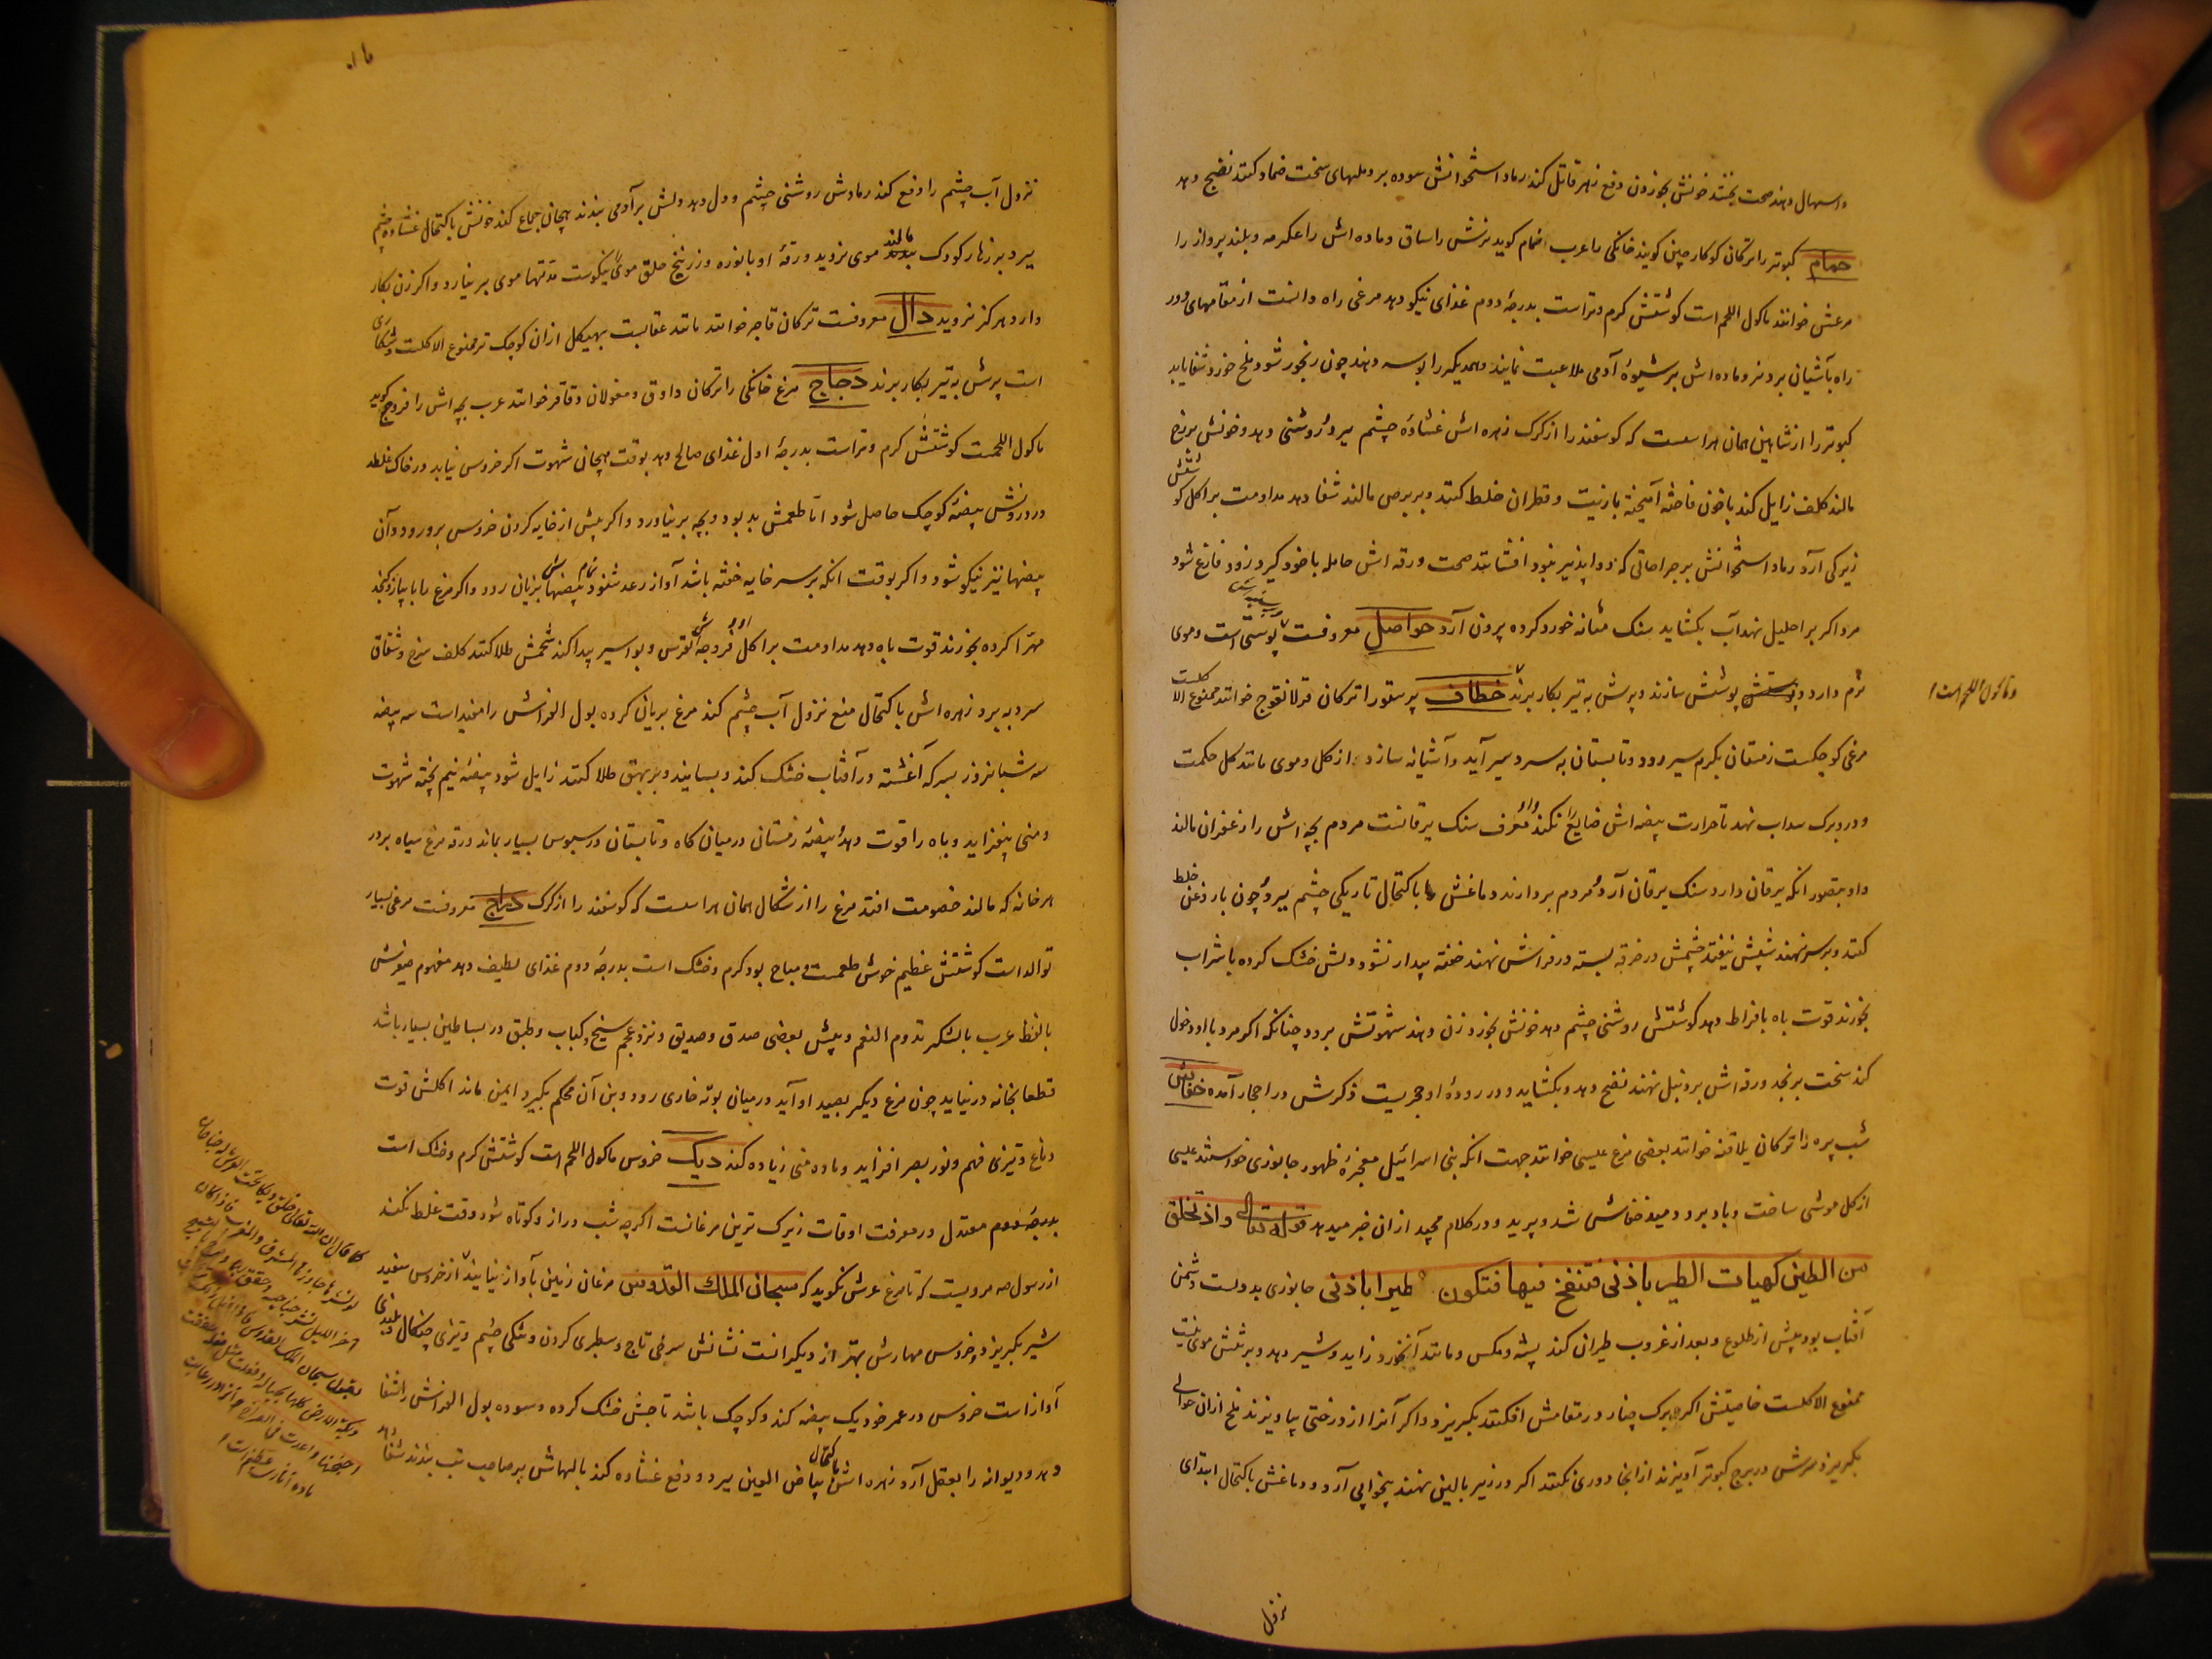 و اسهال دهند صحت بخشد خونش بخورند دفع زهر قاتل کند رماد استخوانش سوده بر دملهای سخت ضماد کنند نضج دهد
حمام کبوتر را ترکان کوکارچین کویند خانکی را عرب حمام کوید نرش را ساق و ماده اش را عکرمه و بلند پرواز را
مرعش خوانند ماکول اللحم است کوشتش کرم و تر است بدرجهٔ دوم غذای نیکو دهد مرغی راه دانست از مقامهای دور
راه بآشیان برد نر و ماده اش بر شیوهٔ آدمی ملاعبت نمایند و همدیکر را بوسه دهند چون رنجور شود ملخ خورد شفا یابد
کبوتر را از شاهین همان هراسست که کوسفند را از کرک زهره اش غشاوهٔ چشم ببرد و روشنی دهد و خونش برخ
مالند کلف زایل کند با خون فاخته آمیخته بازیت و قطران خلط کنند و بر برص مالند شفا دهد مداومت بر اکل کوشتش
زیرکی آرد رماد استخوانش بر جراحاتی که دوا پذیر نبود افشانند صحت ورقه اش حامله با خود کیرد زود فارغ شود
مرد اکر بر احلیل نهد آب بکشاید سنک مثانه خورد کرده برون آرد حواصل معروفست پوستی است و موی
نرم دارد پوستش پوشش سازند و پرش به تیر بکار برند خطاف پرستو را ترکان قرلانقوج خوانند ممنوع الاکلست
و ماکول اللحم است
مرغی کوچکست زمستان بکرم سیر رود و تابستان به سردسیر آید و آشیانه سازد از کل و موی مانند کل حکمت
و در و برک سداب نهد تا حرارت بیضه اش ضایع نکند و او معرف سنک یرقانست مردم بچه اش را زعفران مالند
و او بتصور انکه یرقان دارد سنک یرقان آرد مردم بردارند دماغش با کتحال تاریکی چشم ببرد چون با روغن خلط
کنند و بر سر نهند شپش نیفتد چشمش در خرقه بسته در فراش نهند خفته بیدار نشود دلش خشک کرده با شراب
بخورند قوت باه بافراط دهد کوشتش روشنی چشم دهد خونش بخورد زن دهند شهوتش ببرد چنانکه اکر مرد با او دخول
کند سخت برنجد ورقه اش بر دنبل نهند نضج دهد و بکشاید و در رودهٔ او حجریست ذکرش در احجار آمده خفاش
شب پره را ترکان یلاقنه خوانند بعضی مرغ عیسی خوانند جهت انکه بنی اسرائیل معجزهٔ ظهور جانوری خواستند عیسی
از کل موشی ساخت و باد برو دمید خفاش شد و پرید و در کلام مجید از ان خبر میدهد قوله تعالی و اذ تخلق
من الطین کهیات الطیر باذنی فتنفخ فیها فتکون طیرا باذنی جانوری بددلست دشمن
آفتاب بود پیش از طلوع و بعد از غروب طیران کند پشه و مکس و مانند آن خورد زاید و شیر دهد و بر تنش موی نیست
ممنوع الاکلست خاصیتش اکر برک چنار در مقامش افکنند بکریزد و اکر آنرا از درختی بیاویزند ملخ از ان حوالی
بکریزد سرش در برج کبوتر آویزند از انجا دوری نکنند اکر در زیر بالین نهند بیخوابی آرد و دماغش باکتحال ابتدای
نزول
نزول آب چشم را دفع کند رمادش روشنی چشم و دل دهد دلش بر آدمی بندند هیجان جماع کند خونش باکتحال غشاوه چشم
ببرد بر زهار کودک مالند موی نروید ورقهٔ او با نوره و زرنیخ حلق موی نیکوست مدتها موی بر نیارد و اکر زن بکار
دارد هرکز نروید دال معروفست ترکان قاجر خوانند مانند عقابست بهیکل از ان کوچک تر ممنوع الاکلست و شکاری
است پرش به تیر بکار برند دجاج مرغ خانکی را ترکان داوق و مغولان دقاقر خوانند عرب بچه اش را فروج کوید
ماکول اللحمت کوشتش کرم و تر است بدرجهٔ اول غذای صالح دهد بوقت هیجان شهوت اکر خروس نیابد در خاک غلطد
در درونش بیضهٔ کوچک حاصل شود اما طعمش بد بود و بچه بر نیاورد و اکر پیش از خایه کردن خروس برو رود آن
بیضها نیز نیکو شود و اکر بوقت انکه بر سر خایه خفته باشد آواز رعد شنود تمام بیضهاش بزیان رود و اکر مرغ را با پیاز و کنجد
مهرا کرده بخورند قوت باه دهد مداومت بر اکل فروجه اش نقرس و بواسیر پیدا کند شحمش طلا کنند کلف سرخ و شقاق
سرد ببرد زهره اش باکتحال منع نزول آب چشم کند مرغ بریان کرده بول الفراش را مفید است سه بیضه
سه شبانروز بسرکه آغشته در آفتاب خشک کند و بسایند و بر بهق طلا کنند زایل شود بیضهٔ نیم پخته شهوت
و منی بیفزاید و باه را قوت دهد بیضهٔ زمستان در میان کاه و تابستان در سبوس بسیار بماند ورقه مرغ سیاه بر در
هر خانه که مالند خصومت افتد مرغ را از شکال همان هراسست که کوسفند را از کرک دراج معروفست مرغی بسیار
توالد است کوشتش عظیم خوش طعمت و مباح بود کرم و خشک است بدرجهٔ دوم غذای لطیف دهد مفهوم صفیرش
بالفظ عرب بالشکر تدوم النعم و پیش بعضی صدق و صدیق و نزد عجم سیخ و کباب و طبق در بساطین بسیار باشد
قطعا بخانه در نیاید چون مرغ دیکر بصید او آید در میان بوته خاری رود و بن آن محکم بکیرد ایمن ماند اکلش قوت
دماغ و تیزی فهم و نور بصر افزاید و ماده منی زیاده کند دیک خروس ماکول اللحم است کوشتش کرم و خشک است
بدرجهٔ دوم معتدل در معرفت اوقات زیرک ترین مرغانست اکرچه شب دراز و کوتاه شود وقت غلط نکند
از رسول صم مرویست که تا مرغ عرش نکوید که سبحان الملک القدوس مرغان زمین بآواز نیایند از خروس سفید
شیر بکریزد و خروس مهارش بهتر از دیکرانست نشانش سرخی تاج و سطبری کردن و تنکی چشم و تیزی چنکال و بلندی
آواز است خروس در عمر خود یک بیضه کند و کوچک باشد تاجش خشک کرده و سوده بول الفراش را شفا
دهد و دیوانه را بعقل آرد زهره اش باکتحال بیاض العین ببرد و دفع غشاوه کند بالهاش بر صاحب تب بندند شفا دهد